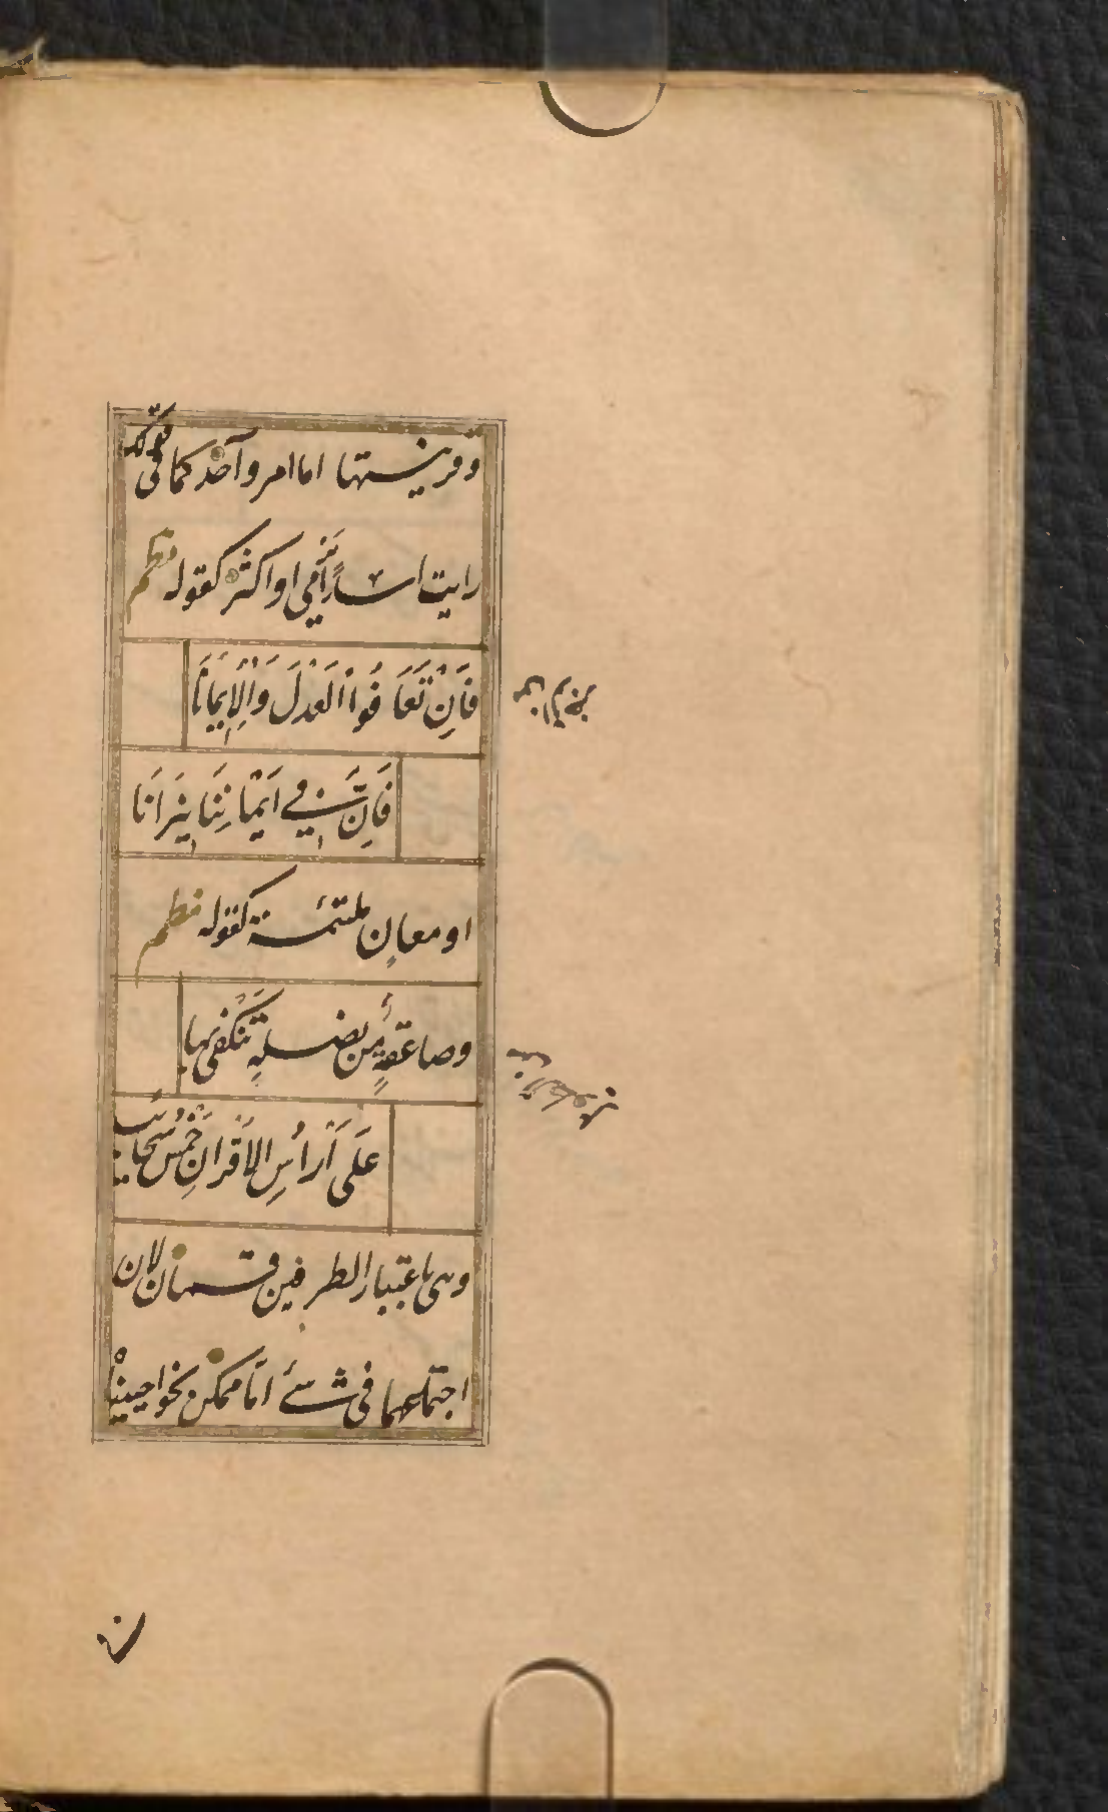 وقرينتها اما امر واحد كما فى قولك
رايت اسدًا يرمى او اكثر كقوله نظم
فَاِنْ تَعَافُوا الْعَدْلَ وَالْاِيمَانَا
فَاِنَّ فِي اَيْمَانِنَا نِيرَانَا
او معانٍ ملتئمة كقوله نظم
وصاعقةٍ مِن نصلهِ تَنْكَفى بها
عَلَى اَرْأُسِ الاَقْرَانِ خَمْسُ سَحَائِبِ
وهى باعتبار الطرفين قسمان لان
اجتماعهما فى شئ امّا ممكن نحو احييناهُ